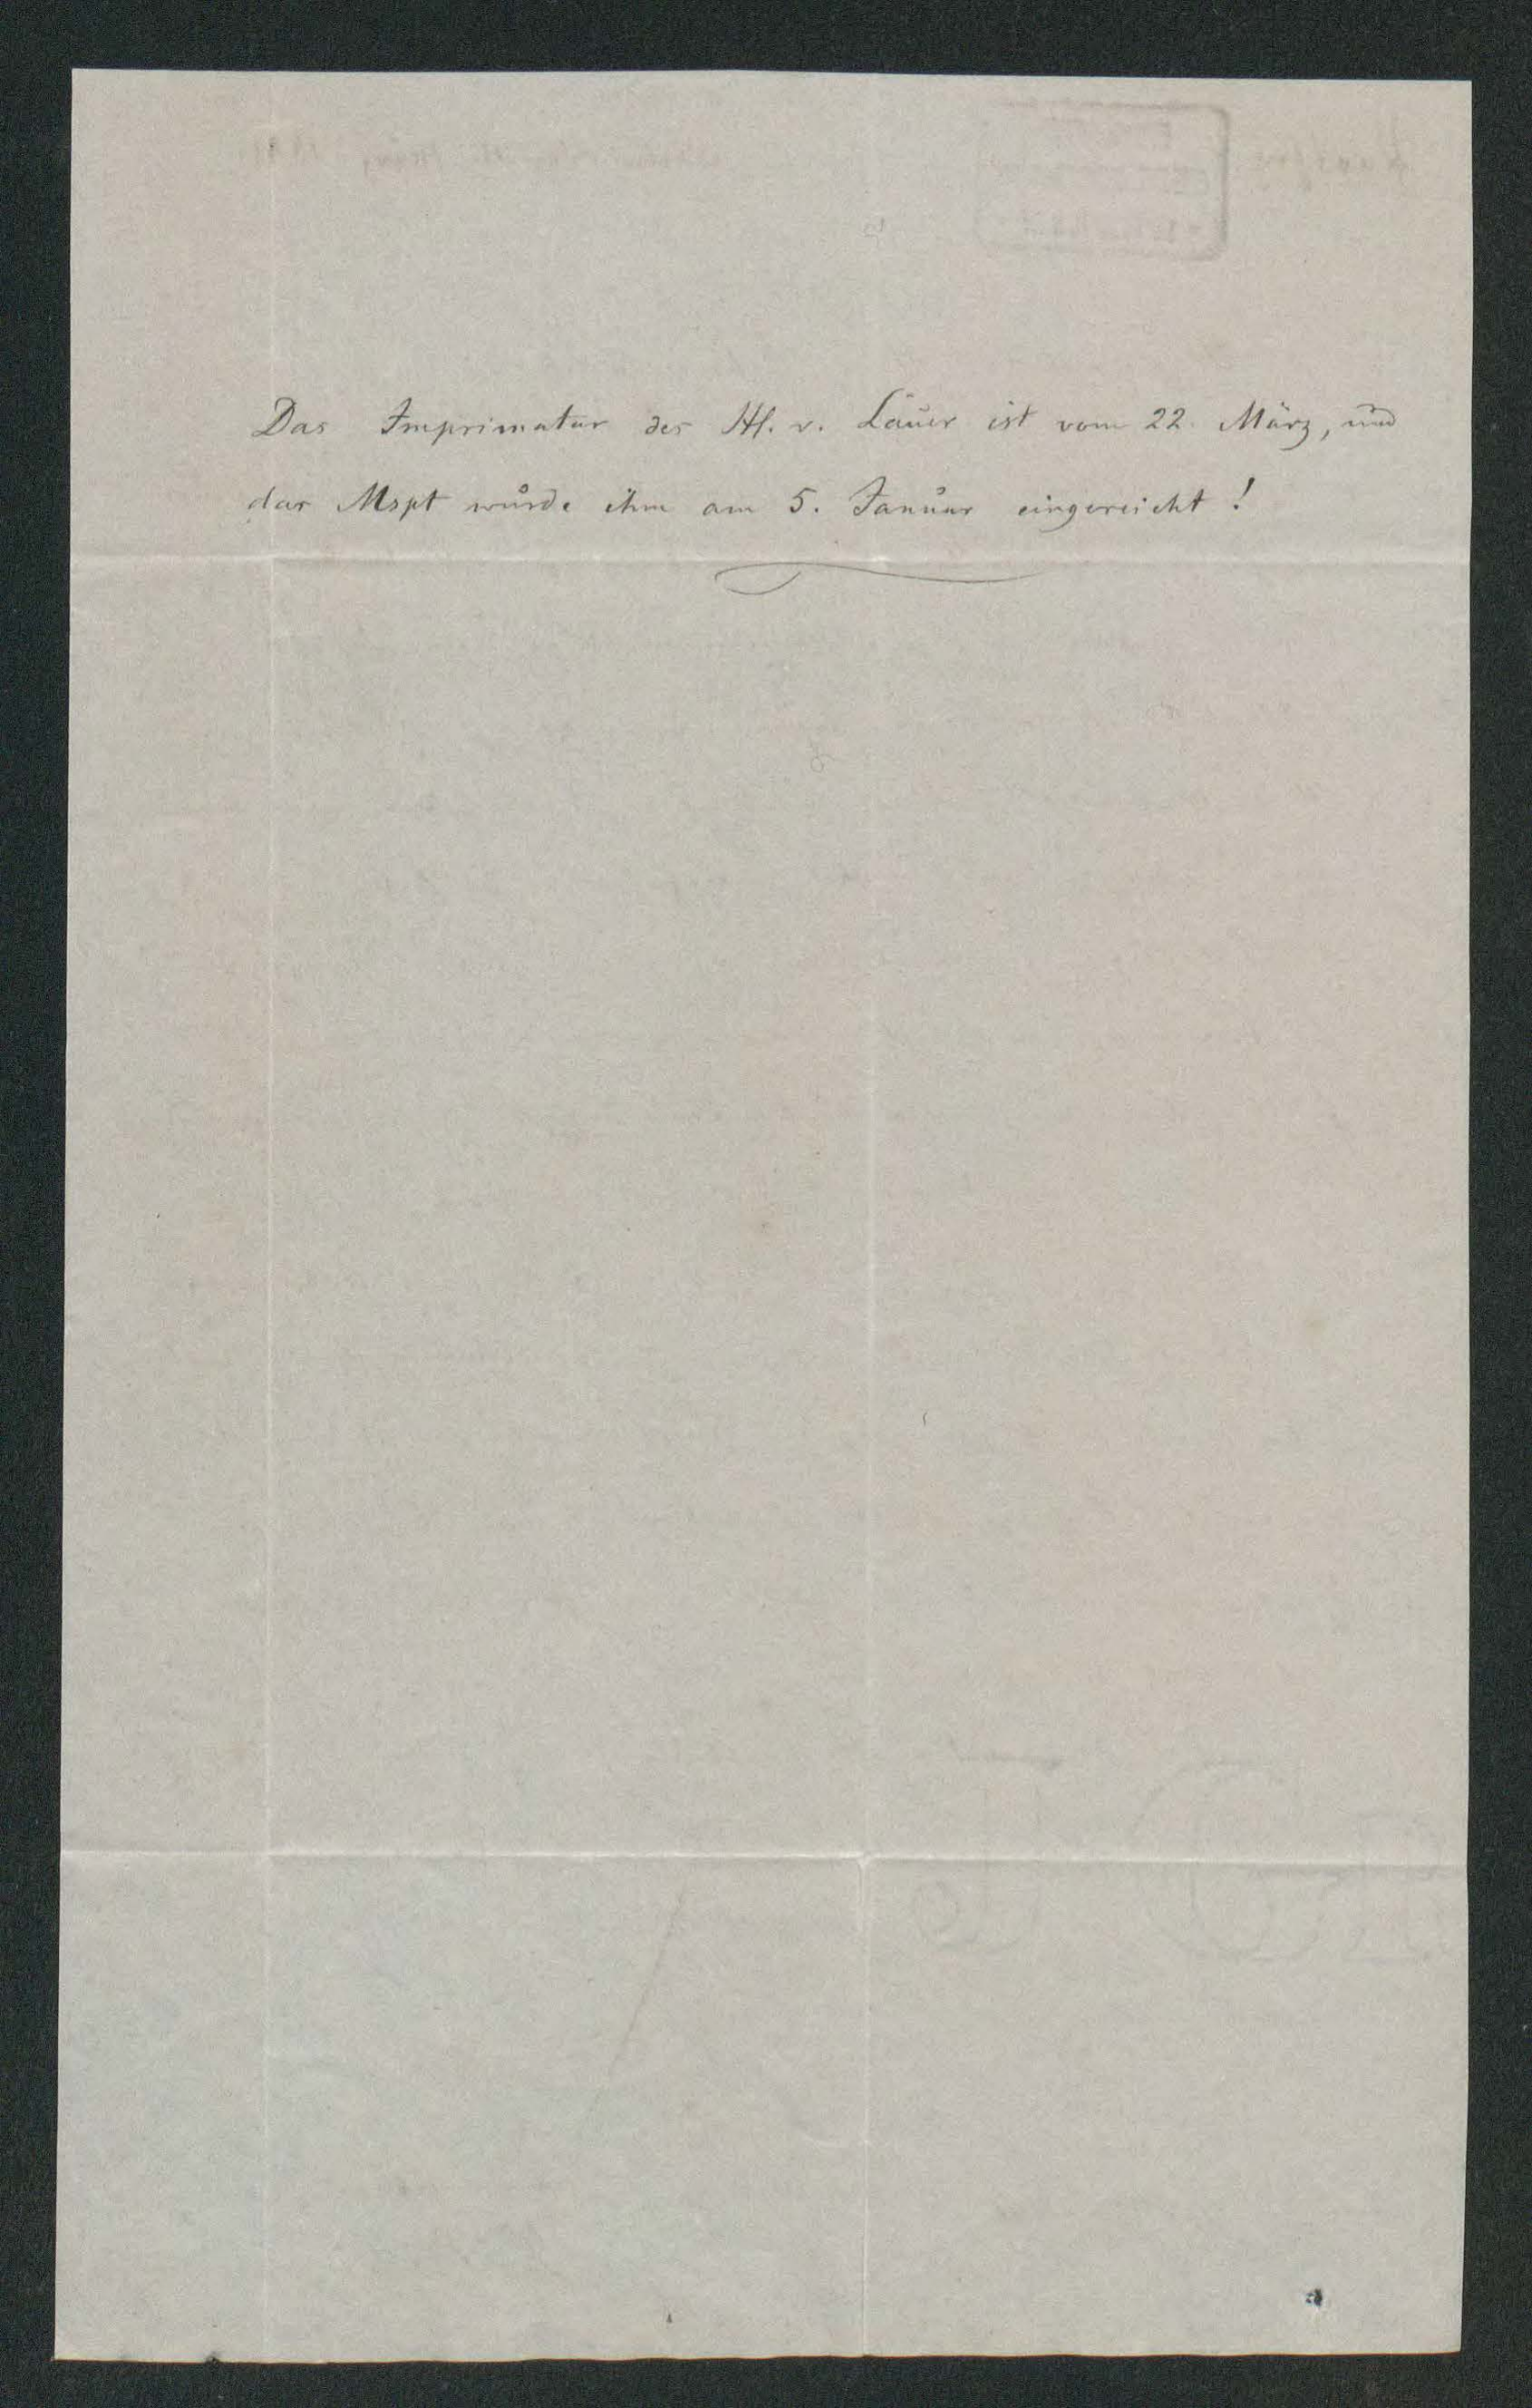 Das Imprimatur des H. v. Lauer ist vom 22. März, und
das Mspt wurde ihm am 5. Januar eingereicht!